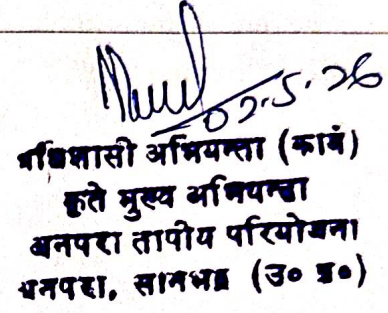 02.5.26
अधिशासी अभियन्ता (कार्य)
कृते मुख्य अभियन्ता
अनपरा तापीय परियोजना
अनपरा, सोनभद्र (उ० प्र०)